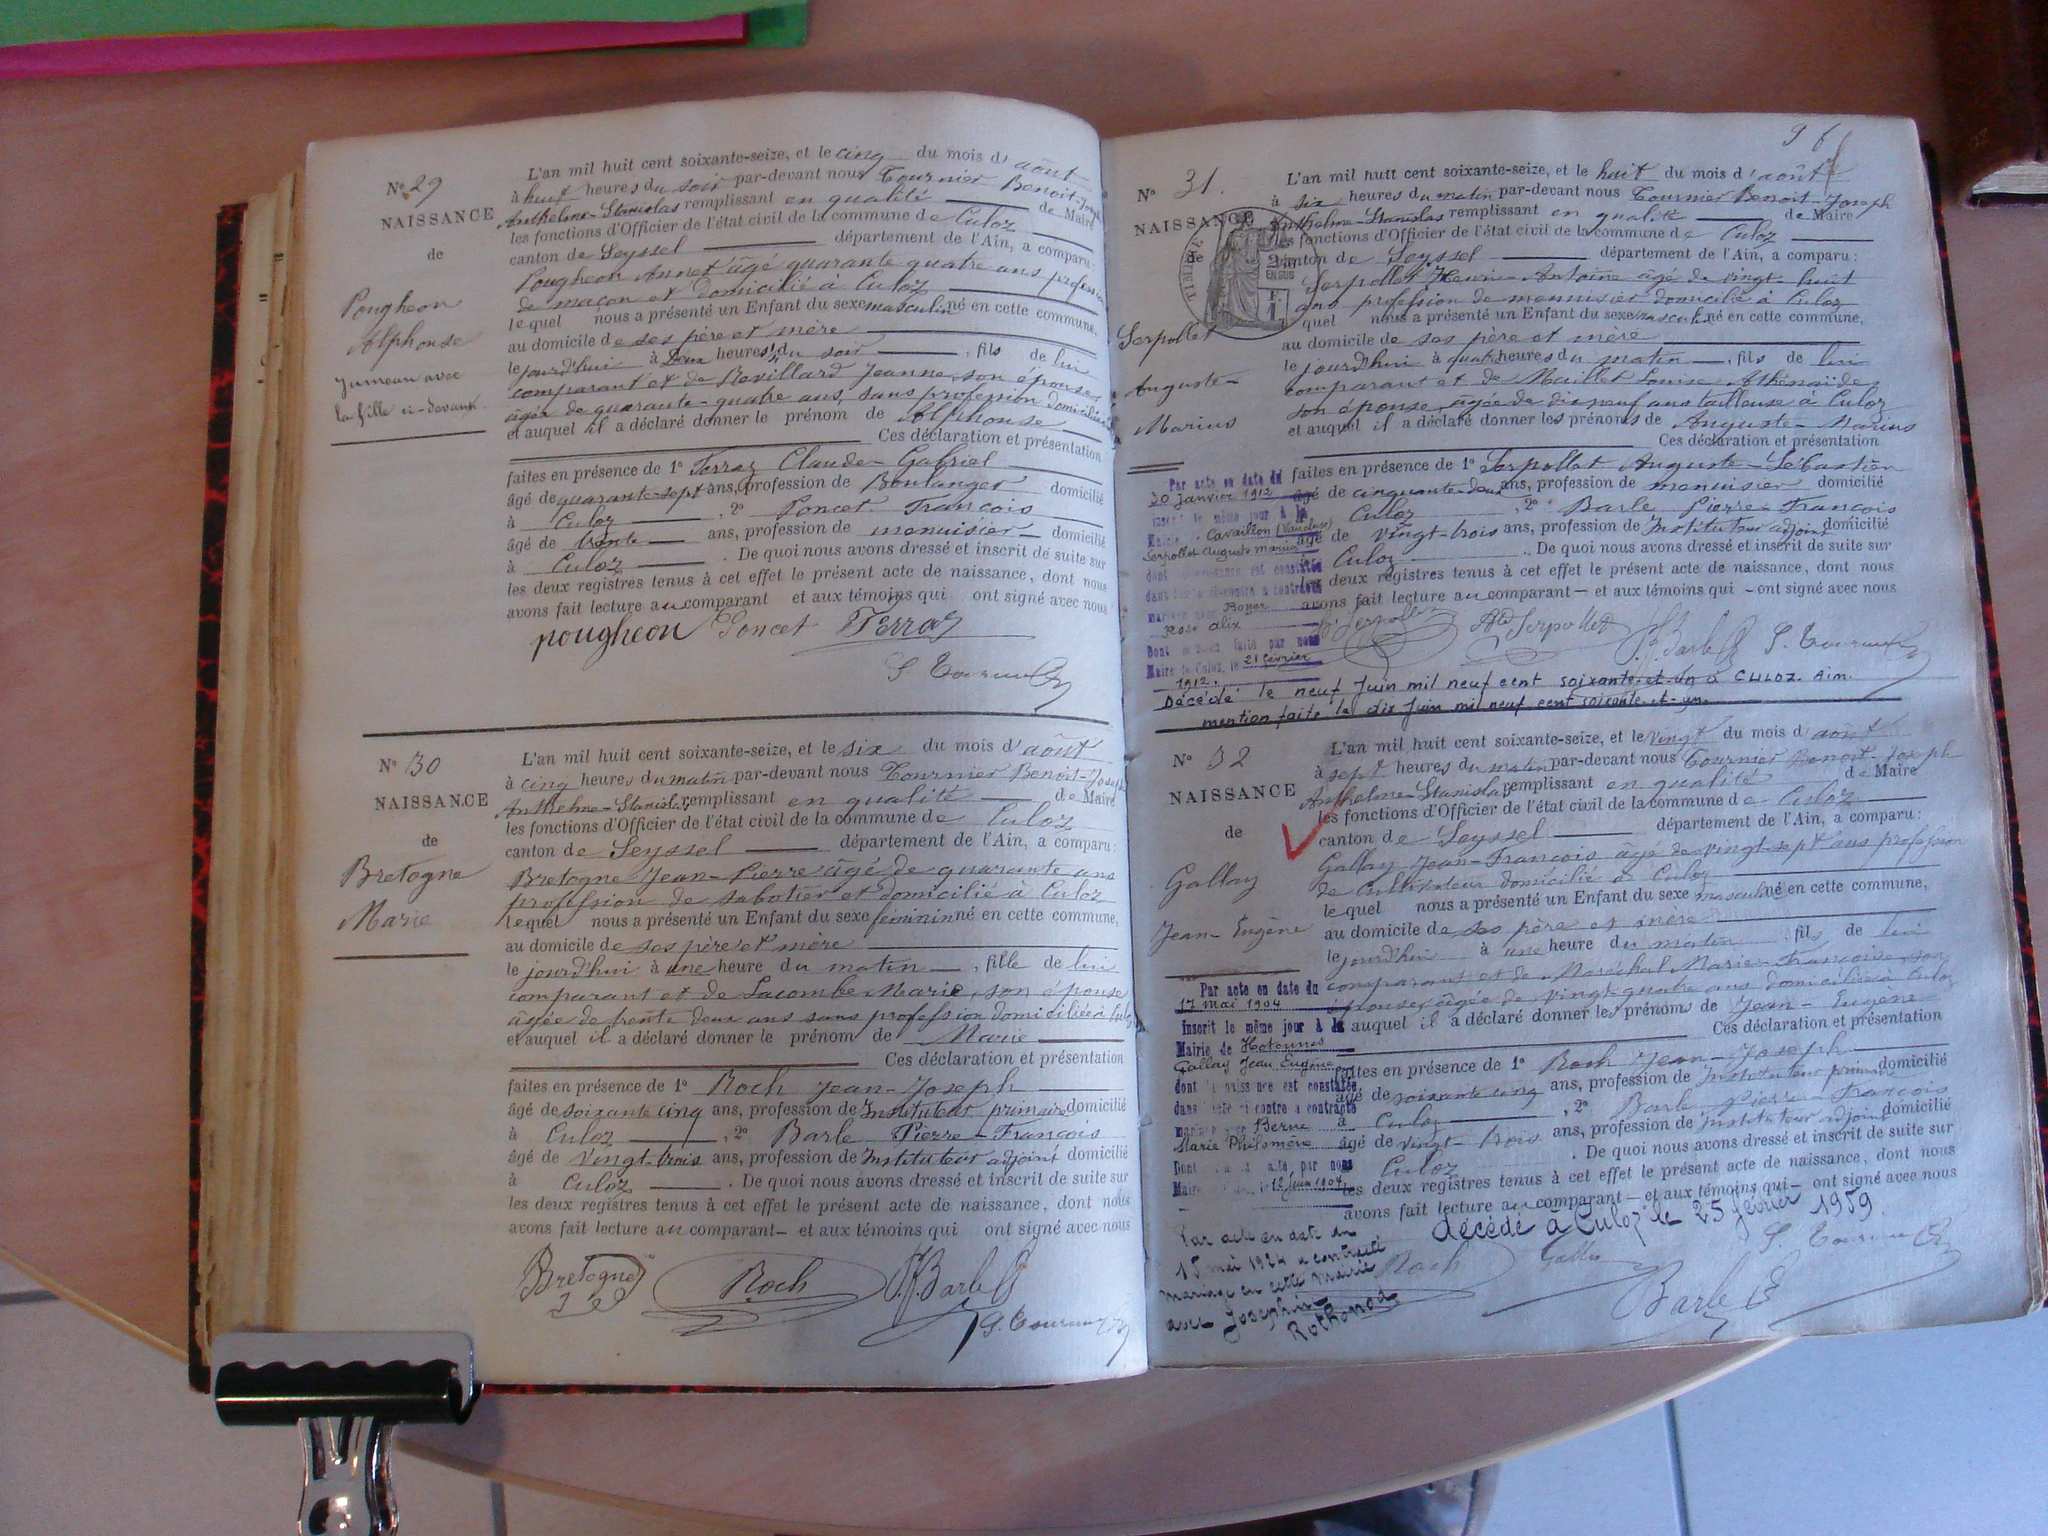 Nº 29
NAISSANCE
de
Pougheon
Alphonse
Jumeau avec
la fille ci-devant.
L'an mil huit cent soixante-seize, et le cinq du mois d'août
à huit heures du soir par-devant nous Tournier Benoit-Joseph
Anthelme-Stanislas remplissant en qualité de Maire
les fonctions d'Officier de l'état civil de la commune de Culoz
canton de Seyssel département de l'Ain, a comparu:
Pougheon Annet âgé quarante quatre ans profession
de maçon et domicilié à Culoz
lequel nous a présenté un Enfant du sexe masculin né en cette commune,
au domicile de ses père et mère
le jourd'hui à Deux heures ½ du soir, fils de lui
comparant et de Revillard Jeanne, son épouse
âgée de quarante-quatre ans, sans profession domiciliée
et auquel il a déclaré donner le prénom de Alphonse
Ces déclaration et présentation
faites en présence de 1º Terraz Claude-Gabriel
âgé de quarante-sept ans, profession de Boulanger domicilié
à Culoz, 2º Poncet François
âgé de trente ans, profession de menuisier domicilié
à Culoz. De quoi nous avons dressé et inscrit de suite sur
les deux registres tenus à cet effet le présent acte de naissance, dont nous
avons fait lecture au comparant et aux témoins qui ont signé avec nous
pougheon Poncet Terraz
S. Tournier
Nº 30
NAISSANCE
de
Bretogne
Marie
L'an mil huit cent soixante-seize, et le six du mois d'août
à cinq heures du matin par-devant nous Tournier Benoit-Joseph
Anthelme-Stanislas remplissant en qualité de Maire
les fonctions d'Officier de l'état civil de la commune de Culoz
canton de Seyssel département de l'Ain, a comparu:
Bretogne Jean-Pierre âgé de quarante ans
profession de sabotier et domicilié à Culoz
lequel nous a présenté un Enfant du sexe féminin né en cette commune,
au domicile de ses père et mère
le jourd'hui à une heure du matin, fille de lui
comparant et de Lacombe Marie, son épouse
âgée de trente deux ans sans profession domiciliée à Culoz
et auquel il a déclaré donner le prénom de Marie
Ces déclaration et présentation
faites en présence de 1º Roch Jean-Joseph
âgé de soixante cinq ans, profession de Instituteur primaire domicilié
à Culoz, 2º Barle Pierre-François
âgé de vingt-trois ans, profession de Instituteur adjoint domicilié
à Culoz. De quoi nous avons dressé et inscrit de suite sur
les deux registres tenus à cet effet le présent acte de naissance, dont nous
avons fait lecture au comparant - et aux témoins qui ont signé avec nous
Bretogne Roch P.F. Barle
S. Tournier
96
Nº 31.
NAISSANCE
de
Serpollet
Auguste-
Marius
L'an mil huit cent soixante-seize, et le huit du mois d'août
à six heures du matin par-devant nous Tournier Benoit-Joseph
Anthelme-Stanislas remplissant en qualité de Maire
les fonctions d'Officier de l'état civil de la commune de Culoz
canton de Seyssel département de l'Ain, a comparu:
Serpollet Henri-Antoine âgé de vingt-huit
ans profession de menuisier domicilié à Culoz
quel nous a présenté un Enfant du sexe masculin né en cette commune,
au domicile de ses père et mère
le jourd'hui à quatre heures du matin, fils de lui
comparant et de Maillet Louise Athénaïde
son épouse, âgée de dix neuf ans tailleuse à Culoz
et auquel il a déclaré donner les prénoms de Auguste-Marius
Ces déclaration et présentation
faites en présence de 1º Serpollet Auguste-Sébastien
âgé de cinquante-deux ans, profession de menuisier domicilié
à Culoz, 2º Barle Pierre-François
âgé de vingt-trois ans, profession de Instituteur adjoint domicilié
à Culoz. De quoi nous avons dressé et inscrit de suite sur
les deux registres tenus à cet effet le présent acte de naissance, dont nous
avons fait lecture au comparant - et aux témoins qui - ont signé avec nous
Serpollet Serpollet P.F. Barle S. Tournier
Par acte en date du
30 Janvier 1912
inscrit le même jour à la
Mairie de Cavaillon (Vaucluse)
Serpollet Auguste Marius
dont la naissance est constatée
dans l'acte ci-contre a contracté
mariage avec Boyer
Rose Alix
Dont mention faite par nous
Maire de Culoz, le 21 février
1912.
Décédé le neuf Juin mil neuf cent soixante et un à CULOZ. Ain.
mention faite le dix Juin mil neuf cent soixante et un.
Nº 32
NAISSANCE
de
Gallay
Jean-Eugène
L'an mil huit cent soixante-seize, et le vingt du mois d'août
à sept heures du matin par-devant nous Tournier Benoit-Joseph
Anthelme-Stanislas remplissant en qualité de Maire
les fonctions d'Officier de l'état civil de la commune de Culoz
canton de Seyssel département de l'Ain, a comparu:
Gallay Jean-François âgé de vingt sept ans profession
de Cultivateur domicilié à Culoz
lequel nous a présenté un Enfant du sexe masculin né en cette commune,
au domicile de ses père et mère
le jourd'hui à une heure du matin, fils de lui
comparant et de Maréchal Marie-Françoise, son
épouse, âgée de vingt quatre ans domiciliée à Culoz
auquel il a déclaré donner les prénoms de Jean-Eugène
Ces déclaration et présentation
faites en présence de 1º Roch Jean-Joseph
âgé de soixante cinq ans, profession de Instituteur primaire domicilié
à Culoz, 2º Barle Pierre-François
âgé de vingt-trois ans, profession de Instituteur adjoint domicilié
Culoz. De quoi nous avons dressé et inscrit de suite sur
les deux registres tenus à cet effet le présent acte de naissance, dont nous
avons fait lecture au comparant - et aux témoins qui - ont signé avec nous
décédé à Culoz le 25 février 1959.
Roch Gallay S. Tournier
Barle
Par acte en date du
17 mai 1904
Inscrit le même jour à la
Mairie de Hotonnes
Gallay Jean Eugène
dont la naissance est constatée
dans l'acte ci contre a contracté
mariage avec Berne
Marie Philomène
Dont mention faite par nous
Maire de Culoz, le 12 Juin 1904
Par acte en date du
15 mai 1924 a contracté
mariage en cette Mairie
avec Josephine
Rothonod